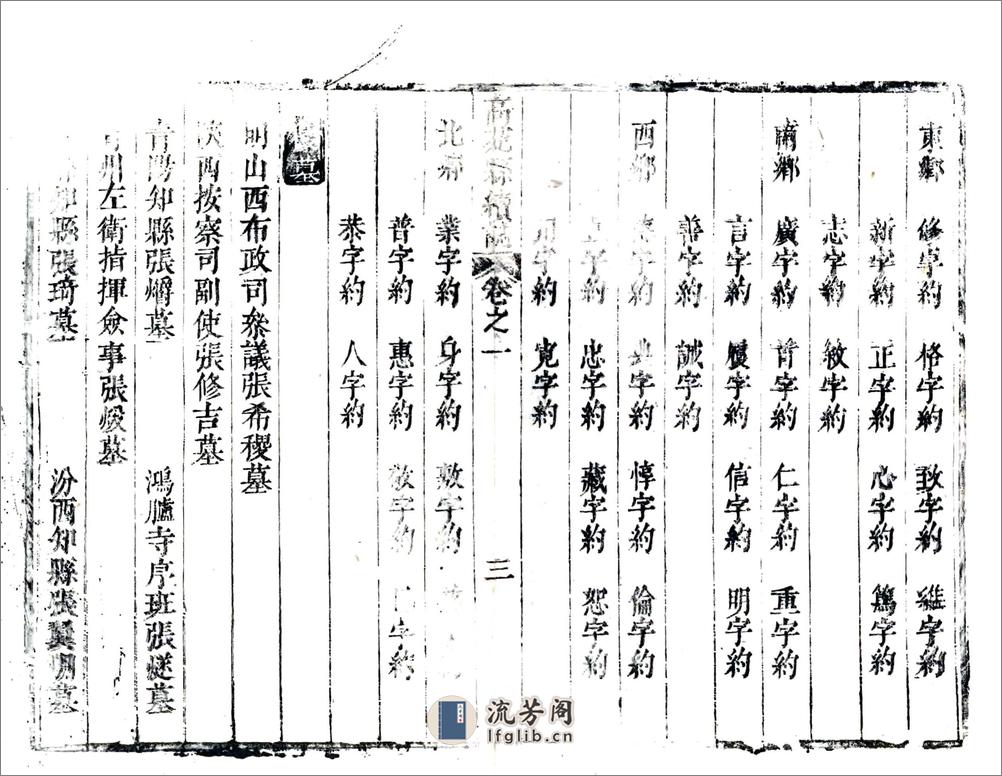 東鄉 修字約 格字約 致字約 維字約
新字約 正字約 心字約 篤字約
志字約 敏字約
南鄉 廣字約 晋字約 仁字約 重字約
言字約 履字約 信字約 明字約
善字約 誠字約
西鄉 字約 字約 惇字約 倫字約
字約 忠字約 藏字約 恕字約
字約 寛字約
高苑縣續誌 卷之一 三
北鄉 業字約 身字約 敷字約
普字約 惠字約 敬字約 字約
恭字約 人字約
墓
明山西布政司叅議張希稷墓
陝西按察司副使張修吉墓
青陽知縣張爝墓 鴻臚寺序班張燧墓
州左衛指揮僉事張煖墓
知縣張琦墓 汾西知縣張翼明墓
流芳阁
lfglib.cn